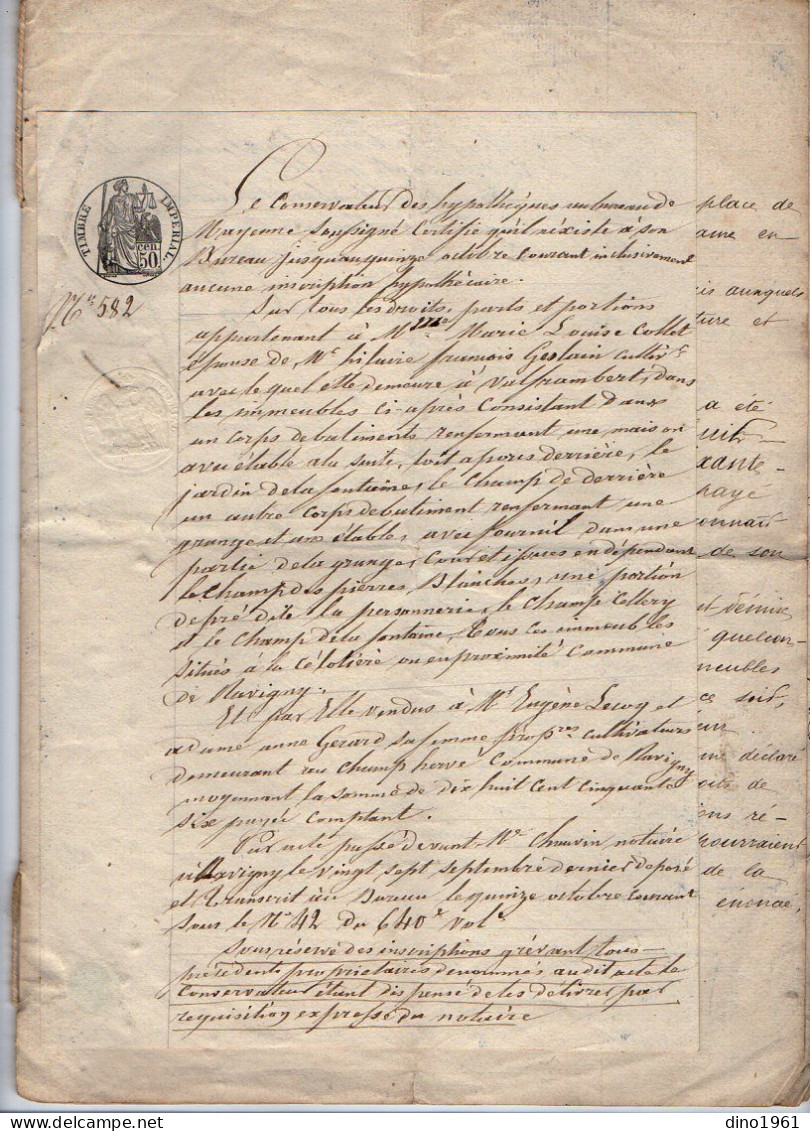 TIMBRE IMPERIAL
50 cen.
N° 582
Le Conservateur des hypothèques au bureau de
Mayenne soussigné certifie qu'il n'existe à son
Bureau jusqu'au quinze octobre courant inclusivement
aucune inscription hypothécaire.
Sur tous les droits, parts et portions
appartenant à Mme Marie Louise Collet
épouse de Mr hilaire françois Geslain cultivr
avec lequel elle demeure à Valframbert, dans
les immeubles ci-après Consistant Dans
un corps de batiments renfermant une maison
avec étable à la suite, toit a porcs derrière, le
jardin de la fontaine, le Champ de derrière
un autre Corps de batiment renfermant une
grange et une étable, avec fournil dans une
partie de la grange, Cour et issues en dépendant
le Champ des pierres Blanches, une portion
de pré dite la personnerie, le Champ
et le Champ de la fontaine, tous ces immeubles
situés à la Célotière ou en proximité Commune
de Ravigny.
Et par Elle vendus à Mr Eugène Lecoq et
a dame anne Gerard sa femme propres cultivateurs
demeurant au Champ hervé Commune de Ravigny
moyennant la somme de dix huit Cent cinquante
six payée comptant.
Par acte passé devant Me Chauvin notaire
à Ravigny le vingt sept septembre dernier deposé
et transcrit au Bureau le quinze octobre Courant
sous le N° 42 du 640e vole
Sous réserve des inscriptions grévant tous
précédents propriétaires dénommés audit acte le
Conservateur étant dispensé de les délivrer par
requisition expresse du notaire
place de
aine en
is auxquels
ture et
a été
uit
xante-
paye
onnait
de son
et démise
quelcon-
meubles
ce soit,
declaré
oits de
ons ré-
pourraient
de la
énoncé,
dino1961